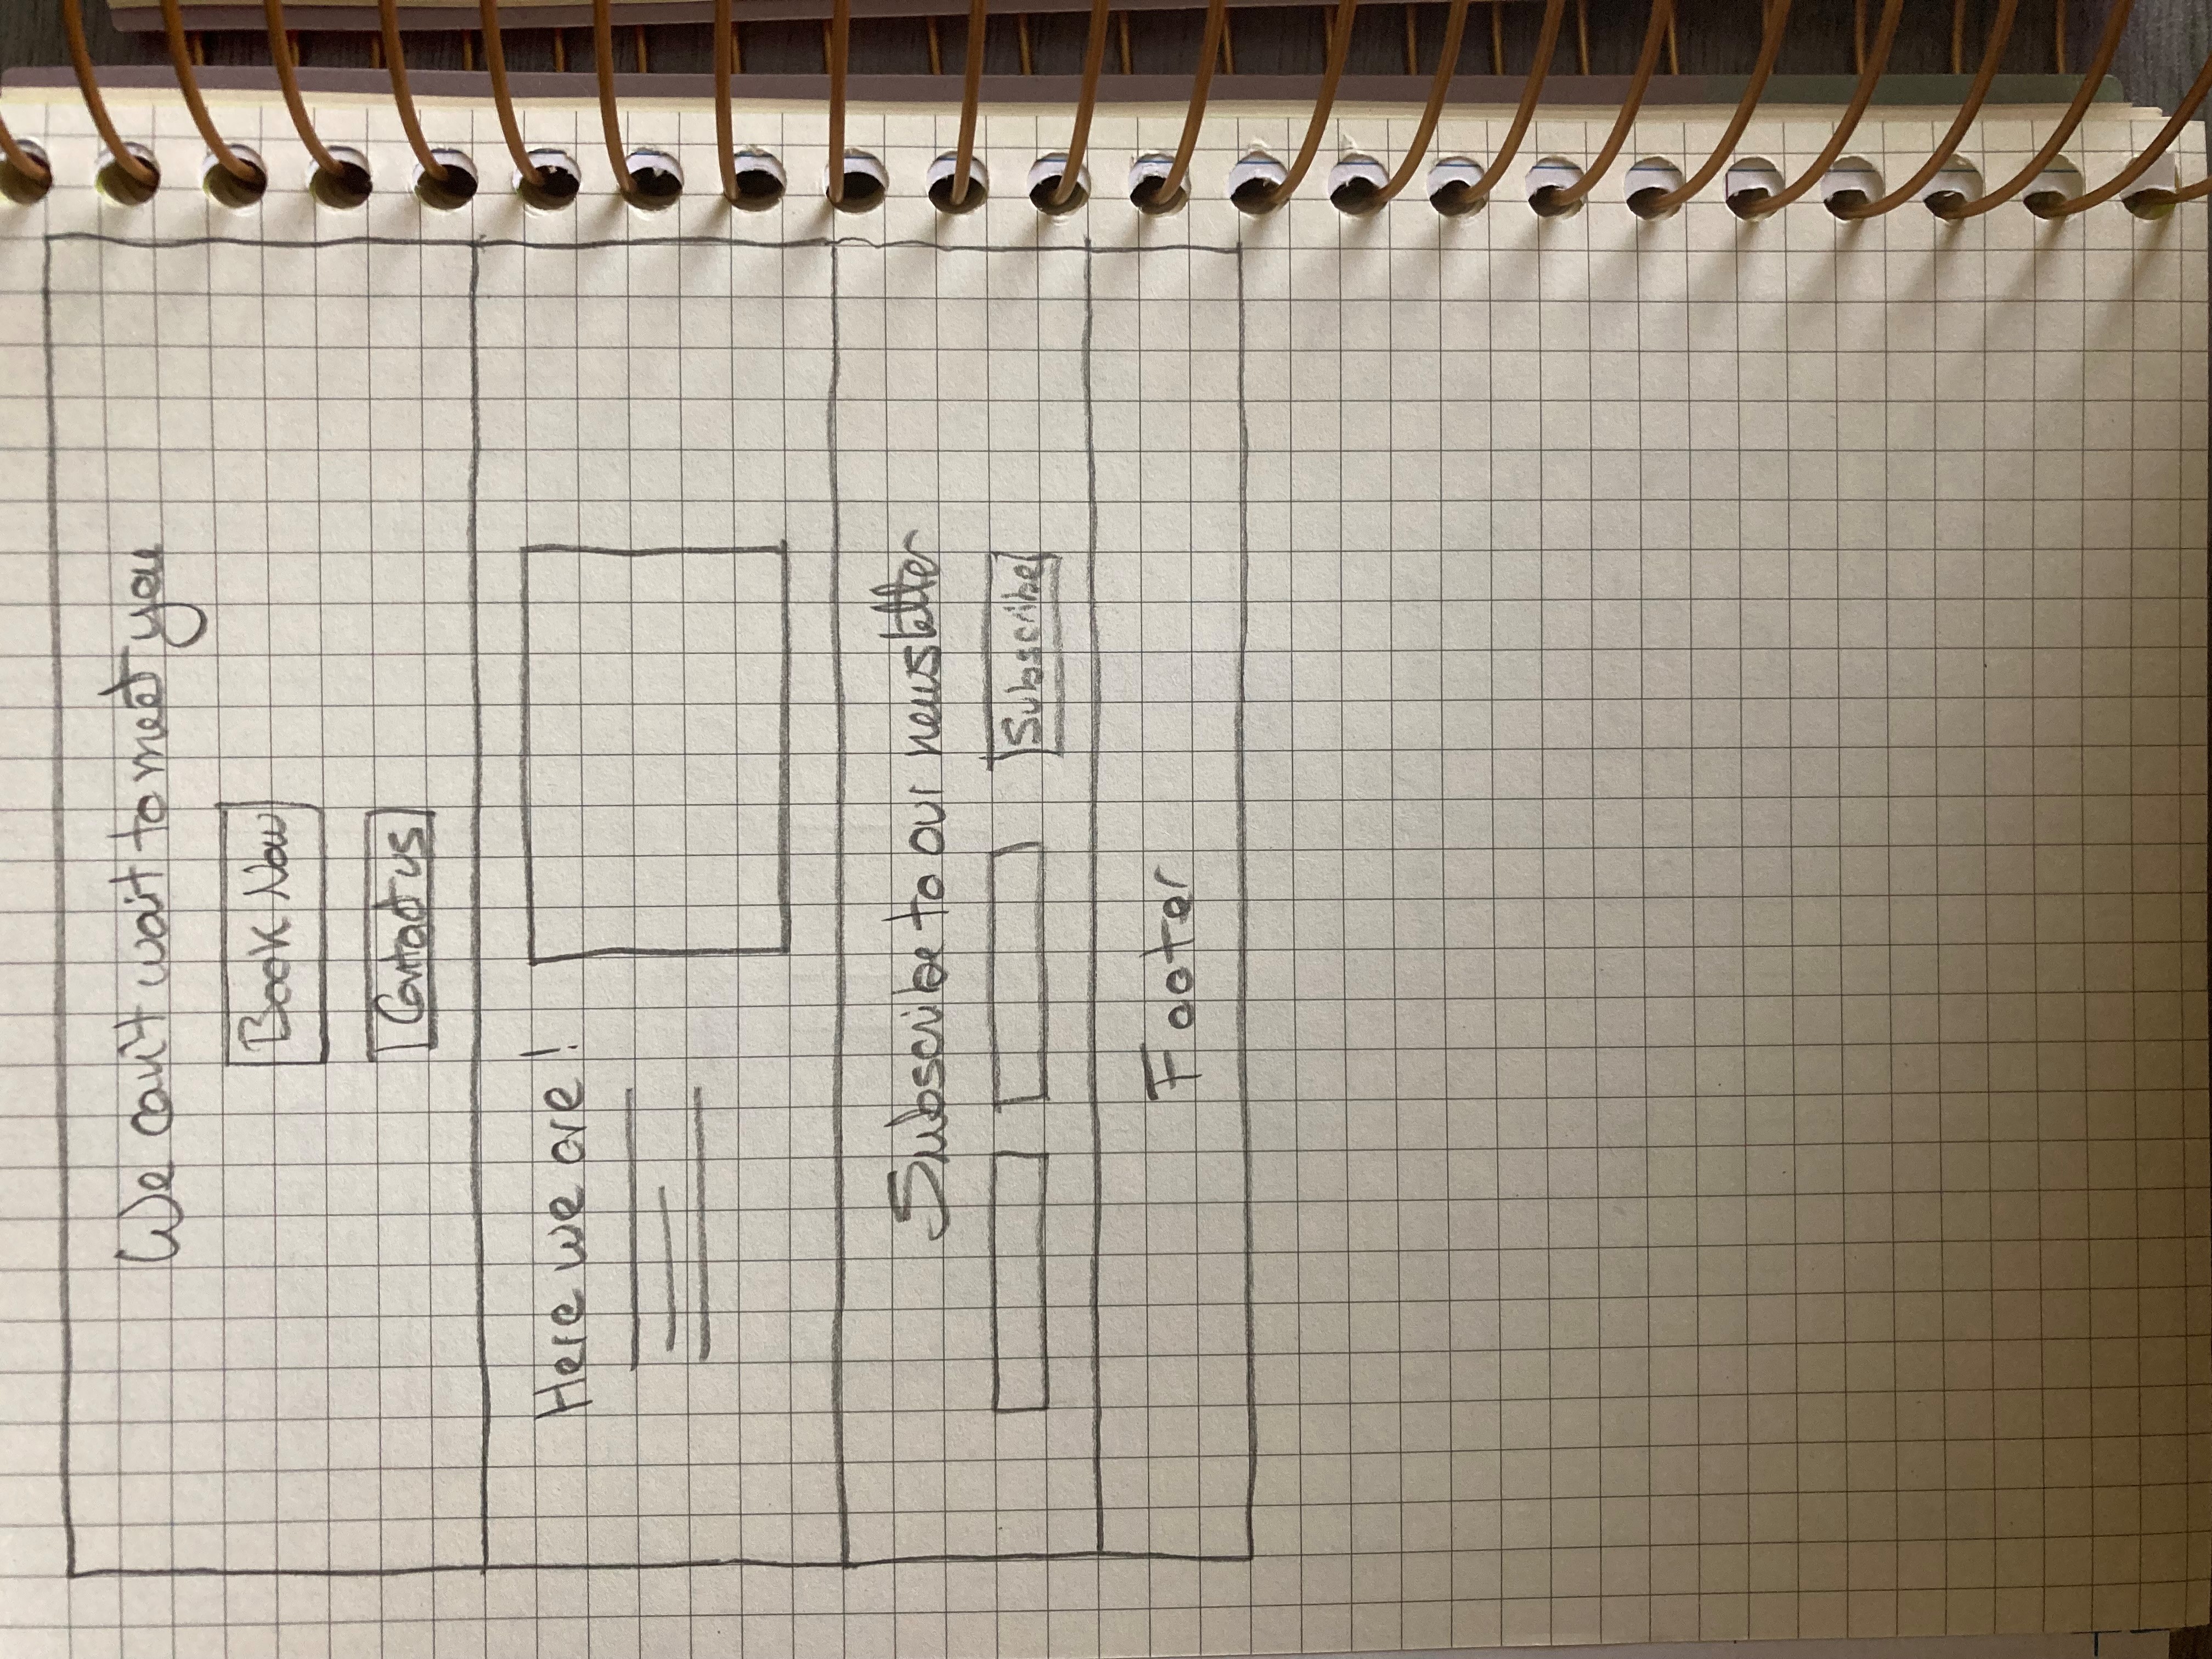 We can't wait to meet you
Book Now
Contact us
Here we are!
Subscribe to our newsletter
Subscribe
Footer